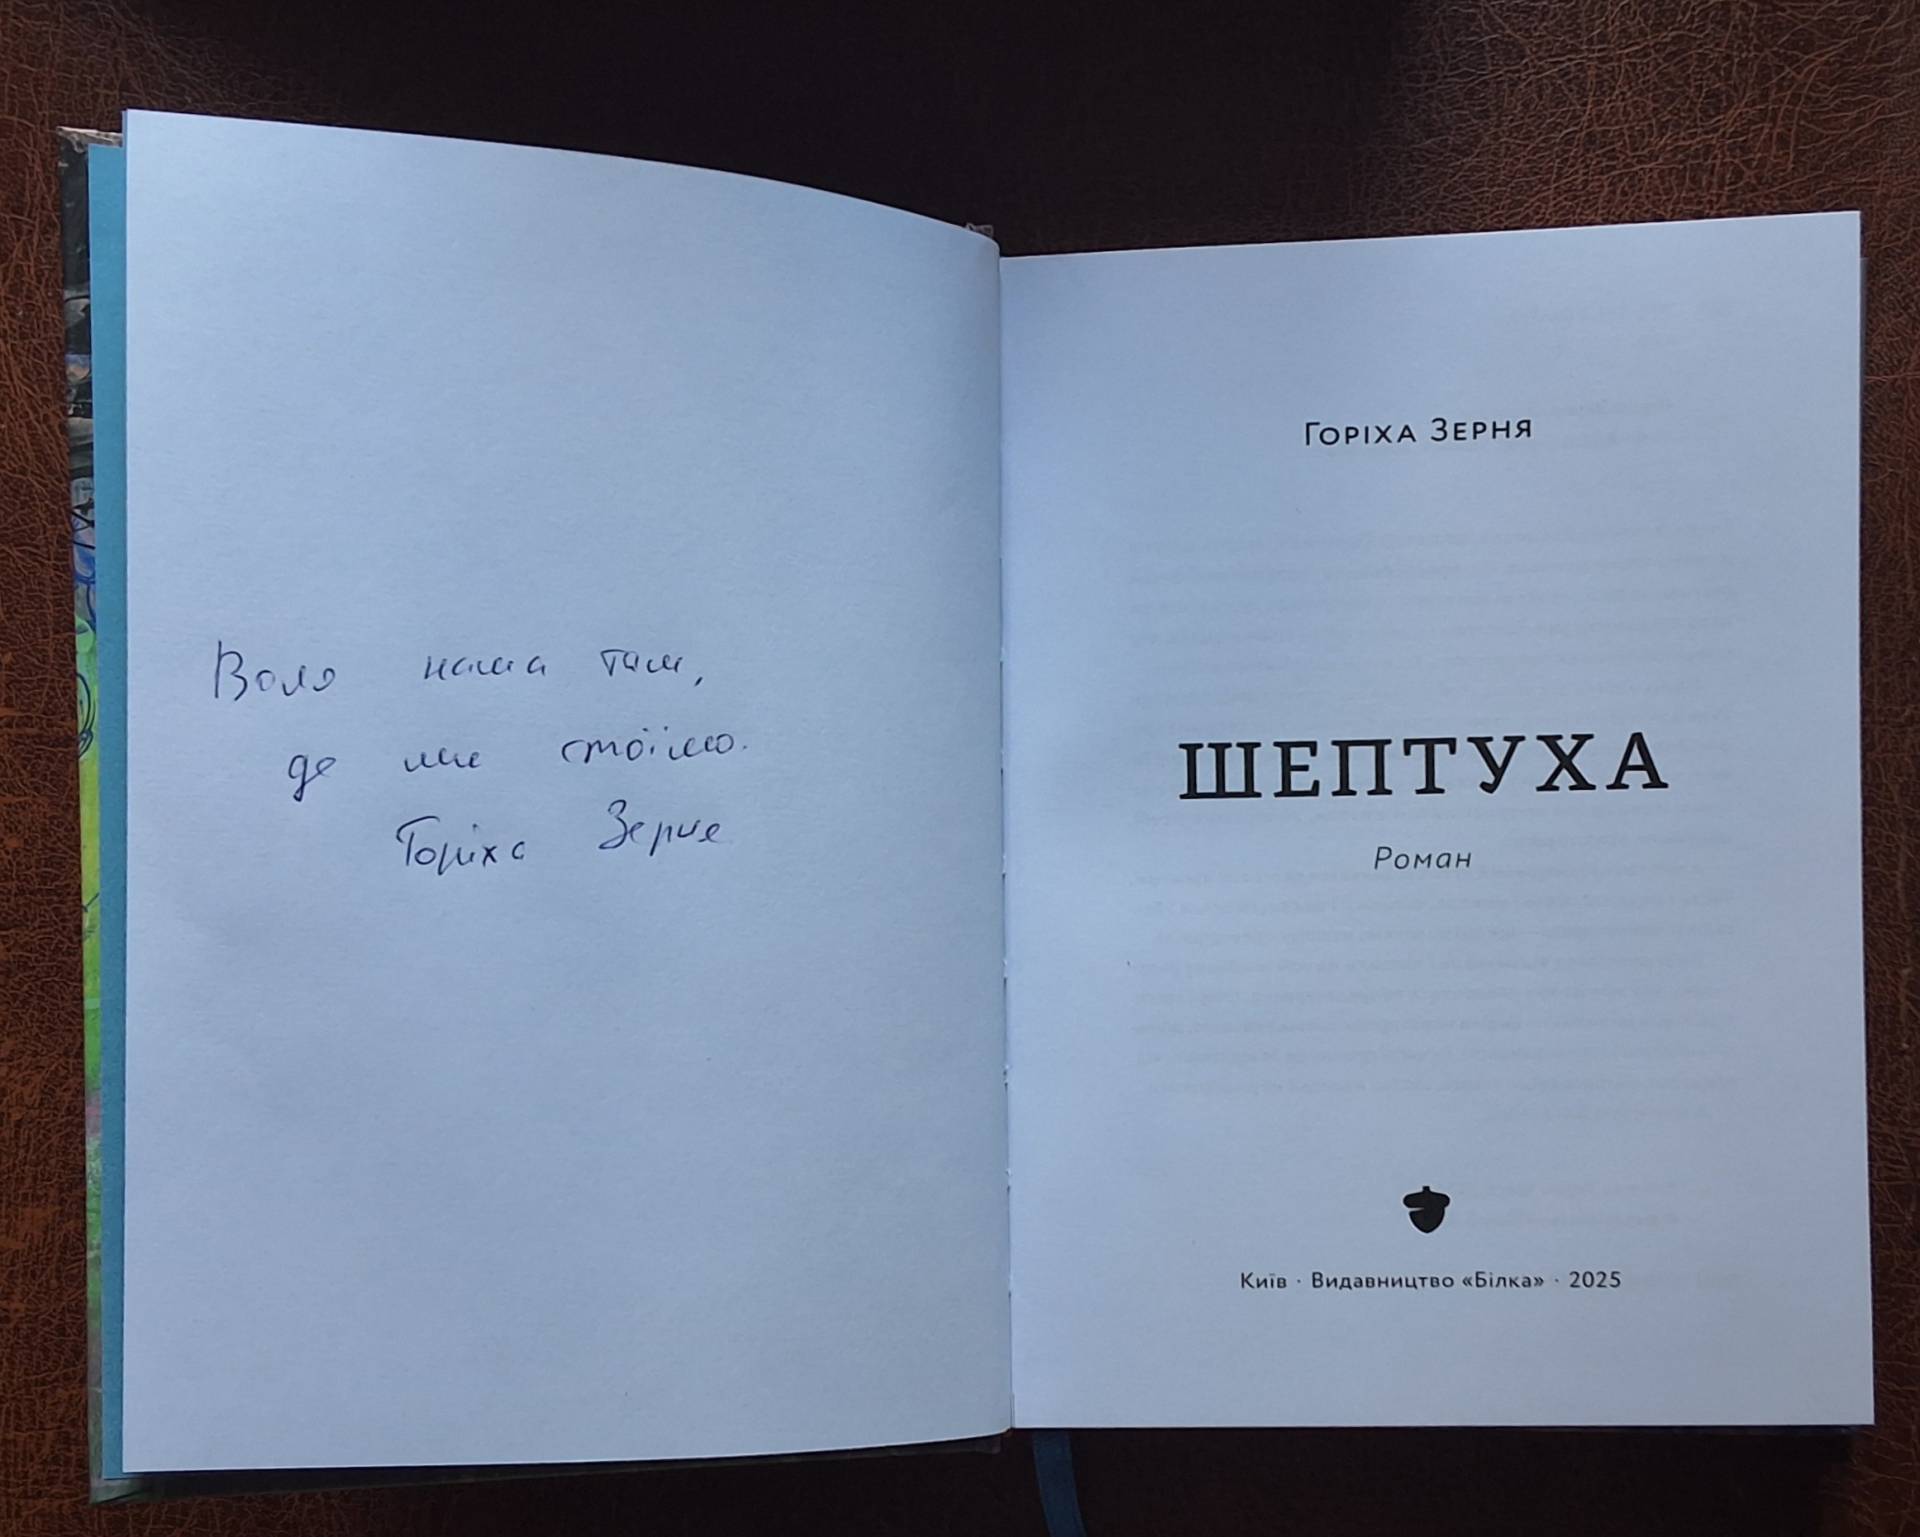 Воля наша там,
де ми стоїмо.
Горіха Зерня
Горіха Зерня
ШЕПТУХА
Роман
Київ · Видавництво «Білка» · 2025